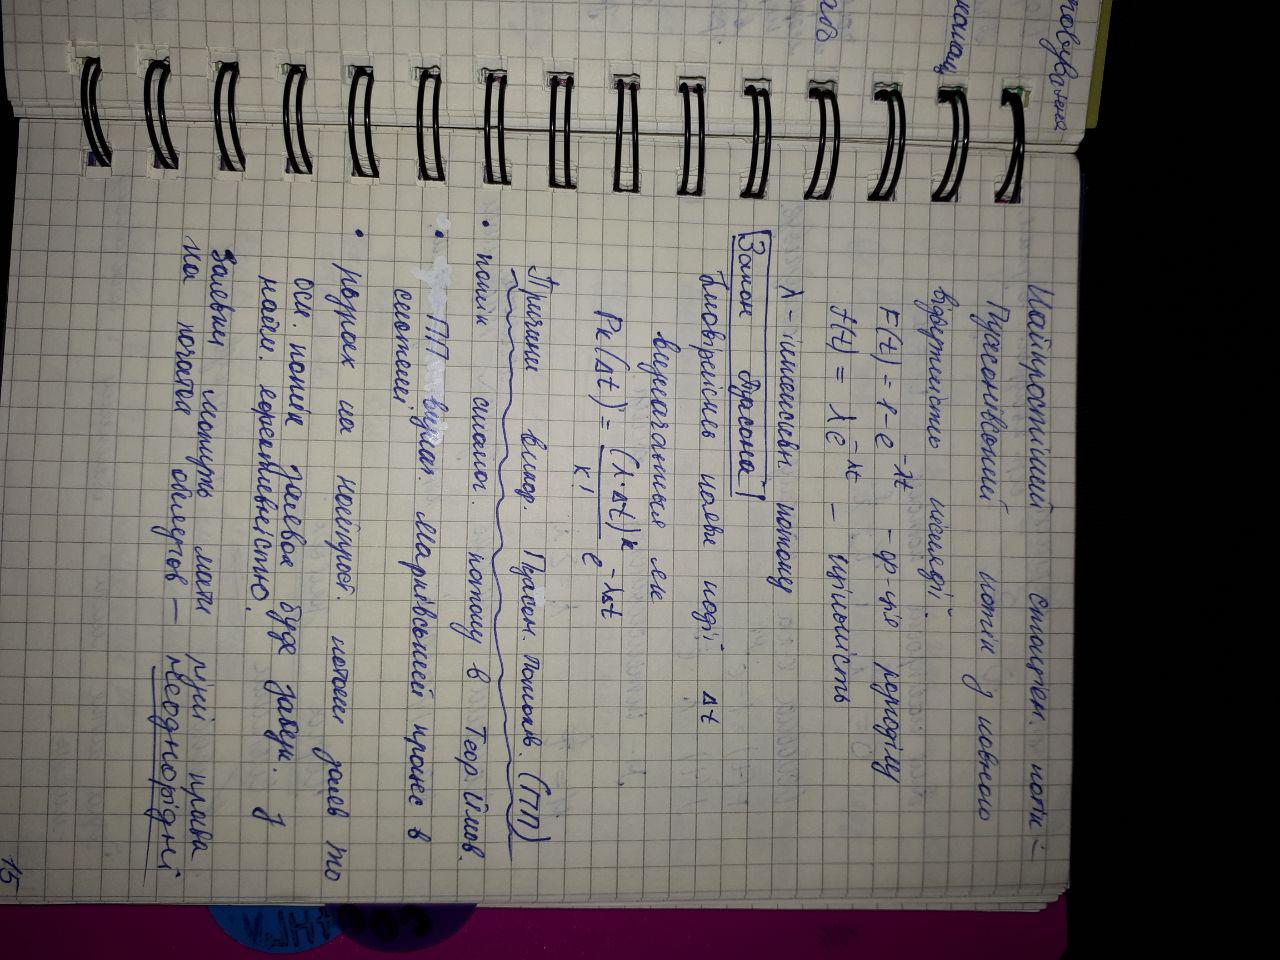 повування
каналу
або
Найпростіший стаціон. потік –
Пуасонівський потік з повного
відсутністю післядії.
F(t) = 1 - e^{-λt} – ф-ція розподілу
f(t) = λe^{-λt} – щільність
λ – інтенсивн. потоку
Закон Пуасона
Ймовірність появи події Δt
визначається як
Pk(Δt) = (λ·Δt)^k / k! e^{-λΔt}
Причини викор. Пуасон. потоків. (ПП)
• потік аналог. потоку в Теор. Ймов.
• ПП визнач. Марківський процес в
системі
• розрах на найпрост. потоки заяв то
осн. потік заявок буде з
найм. ефективністю.
Заявки можуть мати різні права
на початок обслугов – неоднорідні
15